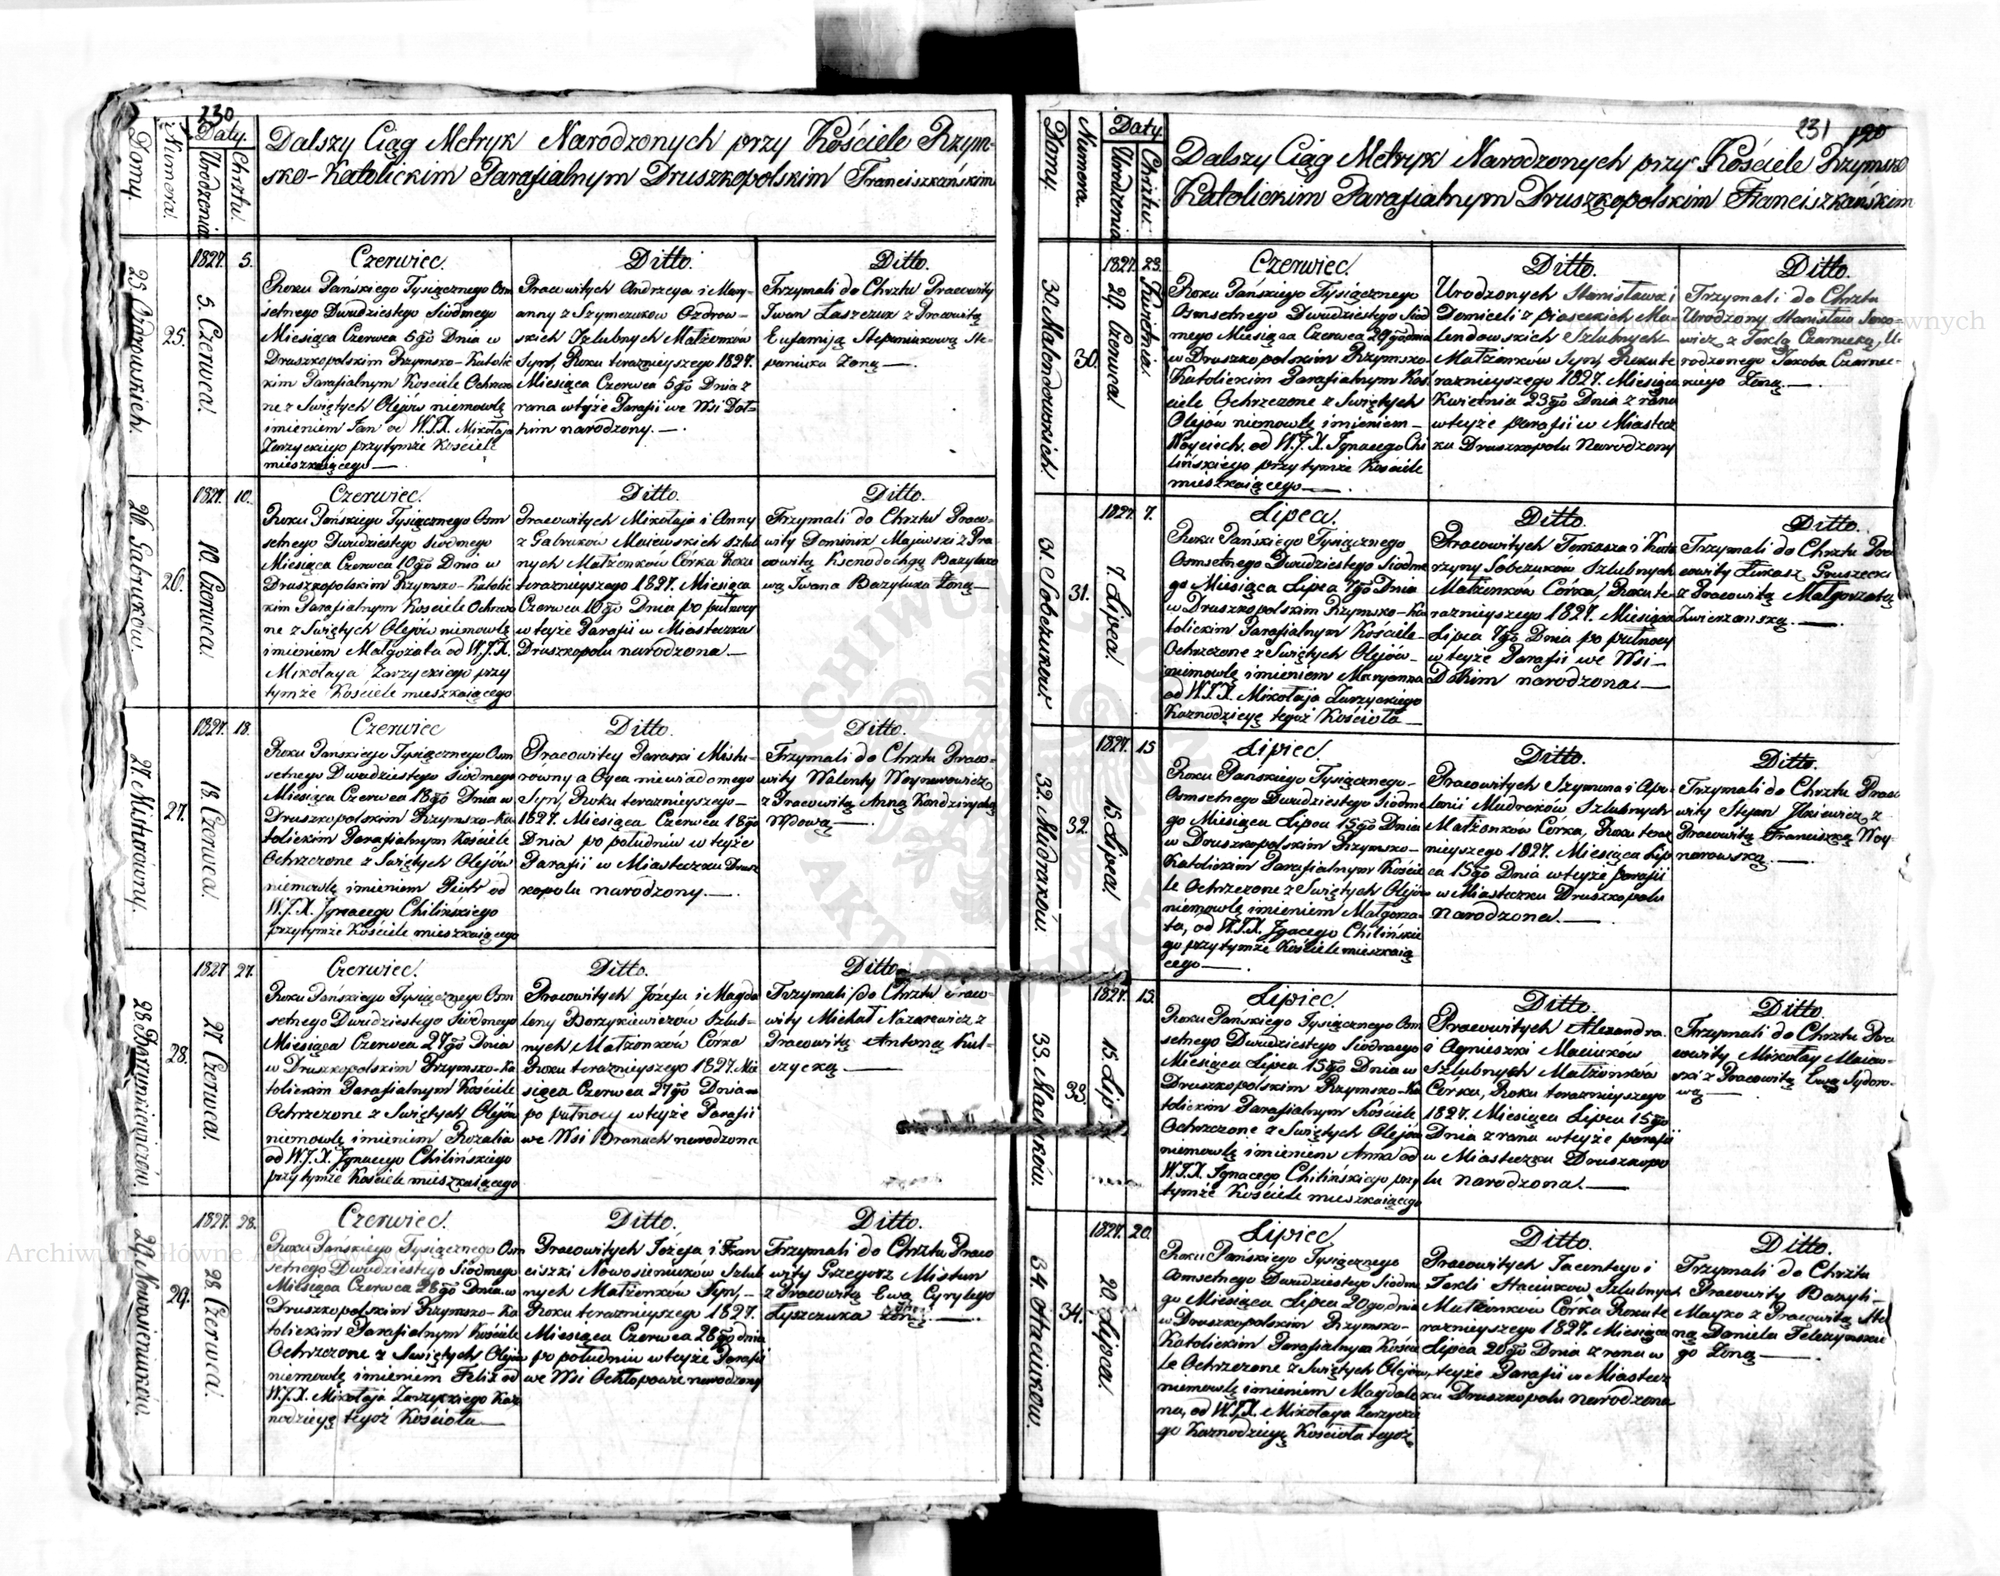 230
Domy.
Numera.
Daty
Urodzenia
Chrztu.
Dalszy Ciąg Metryk Narodzonych przy Kościele Rzym-
sko-Katolickim Parafialnym Druszkopolskim Franciszkańskim
25. Ozdrowskich.
25.
5. Czerwca.
1827. 5.
Czerwiec.
Roku Pańskiego Tysiącznego Osm
setnego Dwudziestego Siódmego
Miesiąca Czerwca 5go Dnia w
Druszkopolskim Rzymsko-Katolic
kim Parafialnym Kościele Ochrzco
ne z Świętych Olejów niemowlę
imieniem Jan od W.J.X. Mikołaja
Zarzyckiego przytymże Kościele
mieszkaiącego
Ditto.
Pracowitych Andrzeya i Mary-
anny z Szymczuków Ozdrow-
skich Szlubnych Małżonków
Syn, Roku terazniejszego 1827.
Miesiąca Czerwca 5go Dnia z
rana wtyże Parafii we Wsi Doł-
kim narodzony.
Ditto.
Trzymali do Chrztu Pracowity
Iwan Łaszczuk z Pracowitą
Eufamiją Stepaniukową Ste-
paniuka Żoną
26. Gabruków.
26.
10. Czerwca.
1827. 10.
Czerwiec.
Roku Pańskiego Tysiącznego Osm
setnego Dwudziestego Siodmego
Miesiąca Czerwca 10go Dnia w
Druszkopolskim Rzymsko-Katolic
kim Parafialnym Kościele Ochrzco
ne z Świętych Olejów niemowlę
imieniem Małgorzata od W.J.X.
Mikołaya Zarzyckiego przy
tymże Kościele mieszkaiącego
Ditto.
Pracowitych Mikołaja i Anny
z Gabruków Maiewskich Szlub
nych Małżonków Córka Roku
terazniejszego 1827. Miesiąca
Czerwca 10go Dnia po pułnocy
wteyże Parafii w Miasteczku
Druszkopolu narodzona.
Ditto.
Trzymali do Chrztu Praco-
wity Dominik Majewski z Pra
cowitą Ksenodochyą Bazyluko
wą Iwana Bazyluka Żoną
27. Misturowny.
27.
18. Czerwca.
1827. 18.
Czerwiec
Roku Pańskiego Tysiącznego Osm
setnego Dwudziestego Siodmego
Miesiąca Czerwca 18go Dnia w
Druszkopolskim Rzymsko-Ka
tolickim Parafialnym Kościele
Ochrzczone z Świętych Olejów
niemowlę imieniem Piotr od
W.J.X. Ignacego Chilińskiego
przytymże Kościele mieszkaiącego
Ditto.
Pracowitey Paraski Mistu-
rowny a Oyca niewiadomego
Syn, Roku terazniejszego
1827. Miesiąca Czerwca 18go
Dnia po południu w teyże
Parafii w Miasteczku Drusz
kopolu narodzony.
Ditto.
Trzymali do Chrztu Praco-
wity Walenty Woynarowicz
z Pracowitą Anną
Wdową
28.
28.
27. Czerwca.
1827 27.
Czerwiec.
Roku Pańskiego Tysiącznego Osm
setnego Dwudziestego Siódmego
Miesiąca Czerwca 27go Dnia
w Druszkopolskim Rzymsko-Ka
tolickim Parafialnym Kościele
Ochrzczone z Świętych Olejów
niemowlę imieniem Rozalia
od W.J.X. Ignacego Chilińskiego
przytymże Kościele mieszkaiącego
Ditto.
Pracowitych Józefa i Magda
leny Borzykiewiczów Szlub-
nych Małżonków Córka
Roku terazniejszego 1827. Mie
siąca Czerwca 27go Dnia
po pułnocy wteyże Parafii
we Wsi Branach narodzona
Ditto
Trzymali do Chrztu Praco-
wity Michał Nazarewicz z
Pracowitą Antoną
czycką
29. Nowosieniuków.
29.
28. Czerwca.
1827. 28.
Czerwiec.
Roku Pańskiego Tysiącznego Osm
setnego Dwudziestego Siódmego
Miesiąca Czerwca 28go Dnia w
Druszkopolskim Rzymsko-Ka
tolickim Parafialnym Kościele
Ochrzczone z Świętych Olejów
niemowlę imieniem Felix od
W.J.X. Mikołaja Zarzyckiego Kaz
nodzieyę tegoż Kościoła
Ditto.
Pracowitych Józefa i Fran
ciszki Nowosieniuków Szlub
nych Małżonków Syn,
Roku terazniejszego 1827.
Miesiąca Czerwca 28go dnia
po południu wteyże Parafii
we Wsi Ochłopowie narodzony
Ditto.
Trzymali do Chrztu Praco
wity Grzegorz Mistun
z Pracowitą Ewą Cyrylego
Łyszczuka Żoną.
231
190
Domy.
Numera.
Daty
Urodzenia
Chrztu.
Dalszy Ciąg Metryk Narodzonych przy Kościele Rzymsko
Katolickim Parafialnym Druszkopolskim Franciszkańskim
30. Malendowskich.
30.
29. Czerwca
Kwietnia.
1827. 23.
Czerwiec.
Roku Pańskiego Tysiącznego
Osmsetnego Dwudziestego Siód
mego Miesiąca Czerwca 29go dnia
w Druszkopolskim Rzymsko
Katolickim Parafialnym Koś
ciele Ochrzczone z Świętych
Olejów niemowlę imieniem
Woyciech. od W.J.X. Ignacego Chi
lińskiego przytymże Kościele
mieszkaiącego
Ditto.
Urodzonych Stanisława i
Domiceli z Piaseckich Ma-
lendowskich Szlubnych
Małżonków Syn, Roku te
raznieyszego 1827. Miesiąca
Kwietnia 23go Dnia z rana
wteyże Parafii w Miastecz
ku Druszkopolu Narodzony
Ditto.
Trzymali do Chrztu
Urodzony Stanisław
wicz z Teklą Czarnecką, U-
rodzonego Jakóba Czarnec-
kiego Żoną.
31. Sobczuków
31.
7. Lipca.
1827. 7.
Lipca.
Roku Pańskiego Tysiącznego
Osmsetnego Dwudziestego Siódme
go Miesiąca Lipca 7go Dnia
w Druszkopolskim Rzymsko-Ka
tolickim Parafialnym Kościele
Ochrzczone z Świętych Olejów
niemowlę imieniem Maryanna
od W.J.X. Mikołaja Zarzyckiego
Kaznodzieyę tegoż Kościoła
Ditto.
Pracowitych Tomasza i Kata
rzyny Sobczuków Szlubnych
Małżonków Córka, Roku te
raznieyszego 1827. Miesiąca
Lipca 7go Dnia po pułnocy
wteyże Parafii we Wsi
narodzona.
Ditto.
Trzymali do Chrztu Pra
cowity Łukasz Gruszecki
z Pracowitą Małgorzatą
Zwierzanską.
32. Mudraków.
32.
15. Lipca.
1827. 15
Lipiec.
Roku Pańskiego Tysiącznego
Osmsetnego Dwudziestego Siódme
go Miesiąca Lipca 15go Dnia
w Druszkopolskim Rzymsko-
Katolickim Parafialnym Koście
le Ochrzczone z Świętych Olejów
niemowlę imieniem Małgorza-
ta, od W.J.X. Igacego Chilińskie
go przytymże Kościele mieszkaią
cego
Ditto.
Pracowitych Szymona i Apo-
lonii Mudraków Szlubnych
Małżonków Córka, Roku teraz
nieyszego 1827. Miesiąca Lip
ca 15go Dnia wteyże Parafii
w Miasteczku Druszkopolu
Narodzona.
Ditto.
Trzymali do Chrztu Praco
wity Stefan z
Pracowitą Franciszką Woy-
narowską.
33. Maciuków.
33.
15. Lip
1827. 15.
Lipiec.
Roku Pańskiego Tysiącznego Osm
setnego Dwudziestego Siódmego
Miesiąca Lipca 15go Dnia w
Druszkopolskim Rzymsko-Ka
tolickim Parafialnym Kościele
Ochrzczone z Świętych Olejów
niemowlę imieniem Anna od
W.J.X. Ignacego Chilińskiego przy
tymże Kościele mieszkaiącego
Ditto.
Pracowitych Alexandra
i Agnieszki Maciuków
Szlubnych Małżonków
Córka, Roku terazniejszego
1827. Miesiąca Lipca 15go
Dnia z rana wteyże Parafii
w Miasteczku Druszkopo
lu narodzona.
Ditto.
Trzymali do Chrztu Pra
cowity Mikołay Maiew-
ski z Pracowitą Ewą Sydoro-
wą
34. Staciuków.
34.
20. Lipca.
1827. 20.
Lipiec
Roku Pańskiego Tysiącznego
Osmsetnego Dwudziestego Siódme
go Miesiąca Lipca 20go dnia
w Druszkopolskim Rzymsko-
Katolickim Parafialnym Koście
le Ochrzczone z Świętych Olejów
niemowlę imieniem Magdale
na, od W.J.X. Mikołaya Zarzycki
go Kaznodzieyę Kościoła tegoż
Ditto.
Pracowitych Jacentego i
Tekli Staciuków Szlubnych
Małżonków Córka Roku te
raznieyszego 1827. Miesiąca
Lipca 20go Dnia z rana w
teyże Parafii w Miastecz
ku Druszkopolu Narodzona
Ditto.
Trzymali do Chrztu
Pracowity Bazyli
Mayko z Pracowitą
ną Daniela
go Żoną
Archiwum Główne Akt Dawnych